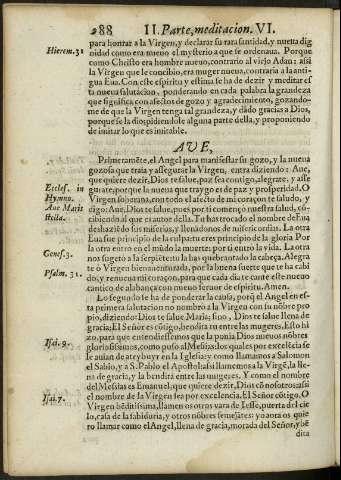 288 II. Parte, meditacion. VI.
para honrar a la Virgen, y declarar su rara santidad, y nueva dig
Hierem. 31
nidad como era nueuo el mysterio a que se ordenaua. Porque
como Christo era hombre nueuo, contrario al viejo Adam: assi
la Virgen que le concibio, era muger nueua, contraria a la anti-
gua Eua. Con este espiritu y estima se ha de dezir y meditar es
ta nueua salutacion, ponderando en cada palabra la grandeza
que significa con afectos de gozo y agradecimiento, gozando-
me de que la Virgen tenga tal grandeza, y dãdo gracias a Dios,
porque se la dio, pidiendole alguna parte della, y proponiendo
de imitar lo que es imitable.
AVE,
Primeramẽte, el Angel para manifestar su gozo, y la nueua
gozosa que traia y assegurar la Virgen, entra diziendo: Aue,
que quiere dezir, Dios te salue, paz sea contigo, alegrate, y asse
Eccles. in
Hymno.
Aue Maris
stella.
gurate, porque la nueua que traygo es de paz y prosperidad. O
Virgen soberana, con todo el afecto de mi coraçon te saludo, y
digo: Aue, Dios te salue, pues por ti començo nuestra salud, cõ
cibiendo al que era autor della. Tu has trocado el nombre de Eua
deshaziẽdo sus miserias, y llenãdonos de misericordias. La otra
Eua fue principio de la culpa: tu eres principio de la gloria Por
la otra entro en el mũdo la muerte: por tã entro la vida. La otra
Genes. 3.
nos sugeto a la serpiẽte: tu la has quebrantado la cabeça. Alegra
te ò Virgen bienauenturada, por la buena suerte que te ha cabi
Psalm. 31.
do, y renueua mi coraçon, para que cada dia te cante este nueuo
cantico de alabança con nueuo feruor de espiritu. Amen.
Lo segundo se ha de ponderar la causa, porq̃ el Angel en es-
ta primera salutacion no nombro a la Virgen con su nõbre pro
pio, diziendo: Dios te salue Maria; sino, Dios te salue llena de
gracia; El Señor es cõtigo, bendita tu entre las mugeres. Esto hi
zo, para que entendiessemos que la ponia Dios nueuos nõbres
Isai. 9.
gloriosissimos, como puso al Messias: los quales por excelẽcia se
le auian de atribuyr en la Iglesia: y como llamamos a Salomon
el Sabio, y a S. Pablo el Apostol: assi llamemos a la Virgẽ, la lle
na de gracia, y la bendita entre las mugeres. Y como el nombre
del Messias es Emanuel, que quiere dezir, Dios cõ nosotros: assi
Isai. 7.
el nombre de la Virgen sea por excelencia. El Señor cõtigo. O
Virgen bẽditissima, llamen os otros vara de Iesse, puerta del cie
lo, casa de la sabiduria, y otros nõbres semejãtes: yo aora os quie
ro llamar como el Angel, llena de gracia, morada del Señor, y bẽ
dita